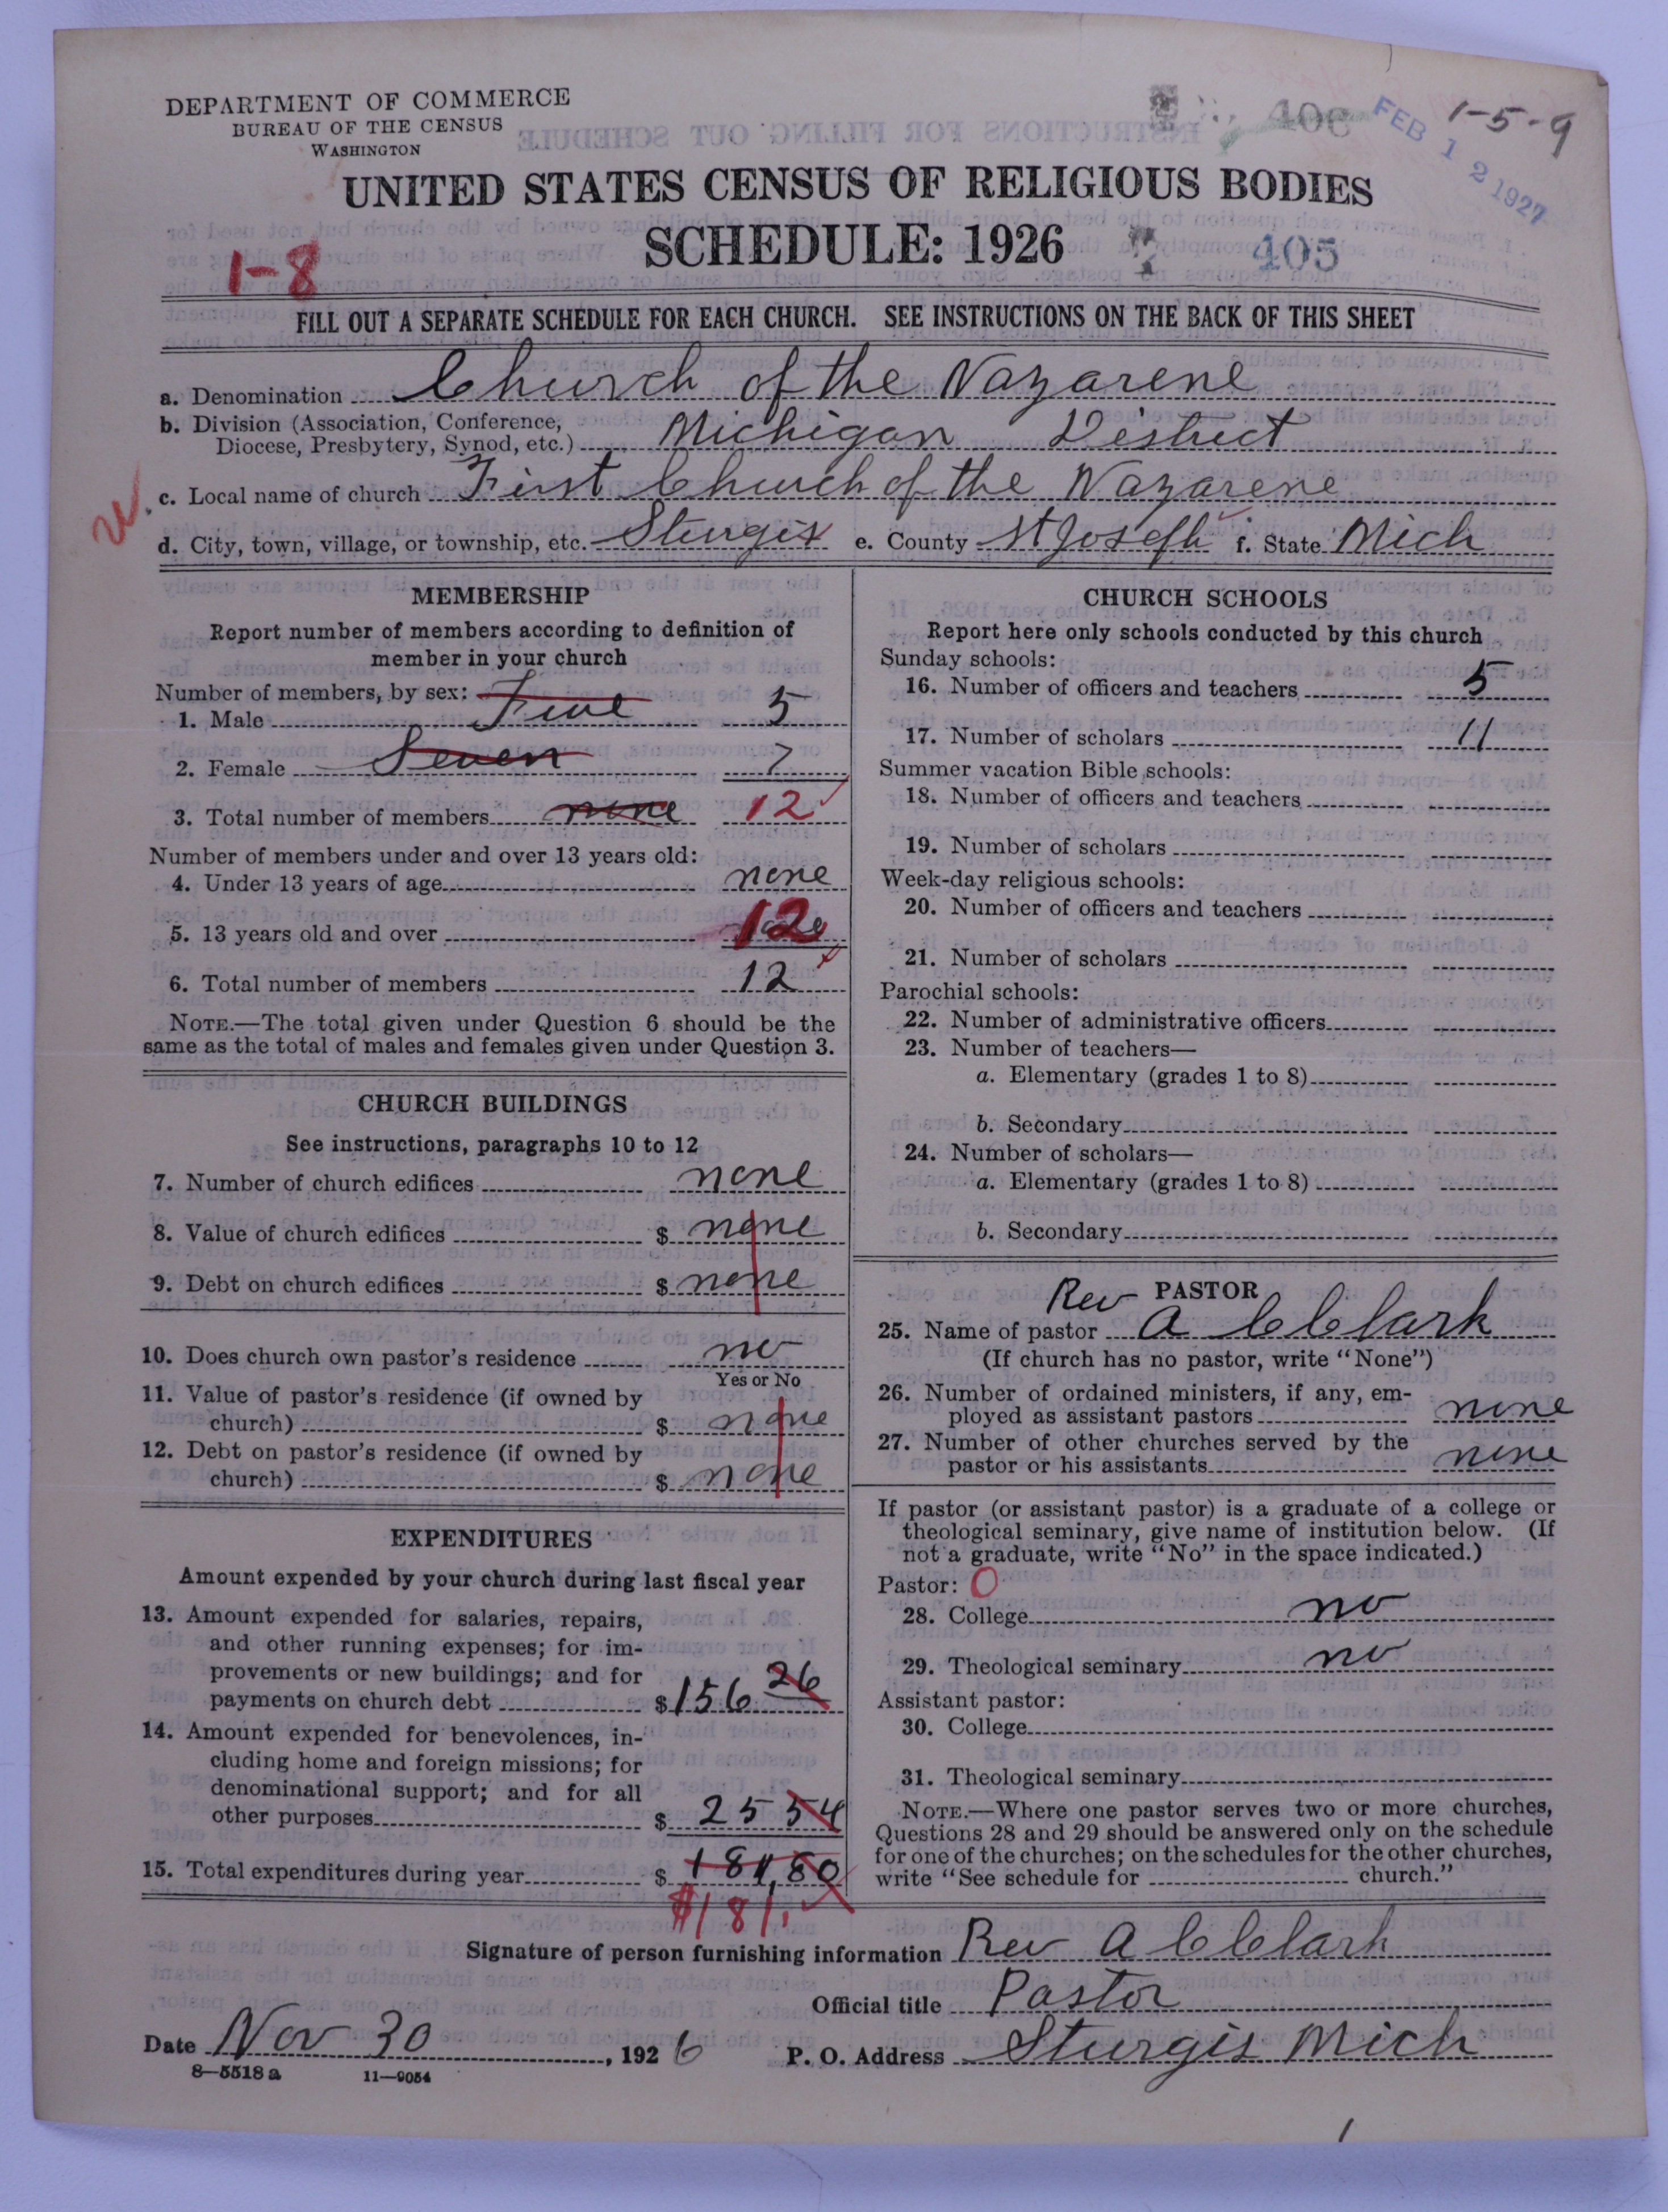 DEPARTMENT OF COMMERCE
BUREAU OF THE CENSUS
WASHINGTON
406
FEB 12 1927
1-5-9
UNITED STATES CENSUS OF RELIGIOUS BODIES
SCHEDULE: 1926
405
1-8
FILL OUT A SEPARATE SCHEDULE FOR EACH CHURCH. SEE INSTRUCTIONS ON THE BACK OF THIS SHEET
a. Denomination Church of the Nazarene
b. Division (Association, Conference,
Diocese, Presbytery, Synod, etc.) Michigan District
c. Local name of church First Church of the Nazarene
d. City, town, village, or township, etc. Sturgis e. County St Joseph f. State Mich
MEMBERSHIP
Report number of members according to definition of
member in your church
Number of members, by sex:
1. Male Five 5
2. Female Seven 7
3. Total number of members none 12
Number of members under and over 13 years old:
4. Under 13 years of age none
5. 13 years old and over 12
6. Total number of members 12
NOTE.—The total given under Question 6 should be the
same as the total of males and females given under Question 3.
CHURCH BUILDINGS
See instructions, paragraphs 10 to 12
7. Number of church edifices none
8. Value of church edifices $ none
9. Debt on church edifices $ none
10. Does church own pastor's residence no
Yes or No
11. Value of pastor's residence (if owned by
church) $ none
12. Debt on pastor's residence (if owned by
church) $ none
EXPENDITURES
Amount expended by your church during last fiscal year
13. Amount expended for salaries, repairs,
and other running expenses; for im-
provements or new buildings; and for
payments on church debt $ 156 26
14. Amount expended for benevolences, in-
cluding home and foreign missions; for
denominational support; and for all
other purposes $ 25 54
15. Total expenditures during year $ 181,80
$181.
CHURCH SCHOOLS
Report here only schools conducted by this church
Sunday schools:
16. Number of officers and teachers 5
17. Number of scholars 11
Summer vacation Bible schools:
18. Number of officers and teachers
19. Number of scholars
Week-day religious schools:
20. Number of officers and teachers
21. Number of scholars
Parochial schools:
22. Number of administrative officers
23. Number of teachers—
a. Elementary (grades 1 to 8)
b. Secondary
24. Number of scholars—
a. Elementary (grades 1 to 8)
b. Secondary
PASTOR
25. Name of pastor Rev A C Clark
(If church has no pastor, write "None")
26. Number of ordained ministers, if any, em-
ployed as assistant pastors none
27. Number of other churches served by the
pastor or his assistants none
If pastor (or assistant pastor) is a graduate of a college or
theological seminary, give name of institution below. (If
not a graduate, write "No" in the space indicated.)
Pastor: O
28. College no
29. Theological seminary no
Assistant pastor:
30. College
31. Theological seminary
NOTE.—Where one pastor serves two or more churches,
Questions 28 and 29 should be answered only on the schedule
for one of the churches; on the schedules for the other churches,
write "See schedule for church."
Signature of person furnishing information Rev A C Clark
Official title Pastor
Date Nov 30, 1926 P. O. Address Sturgis Mich
8—5518 a 11—9054
1